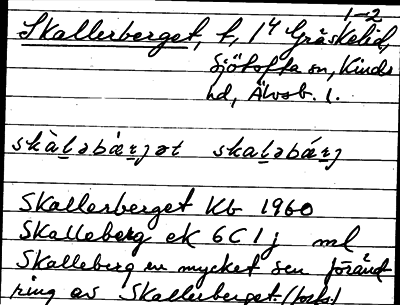 1-2
Skallerberget, t, 1⁴ Gräskelid,
Sjötofta sn, Kinds
hd, Älvsb. l.
skàḻəbà̱ṟjət skaḻəbá̱ṟj
Skallerberget Kb 1960
Skalleberg ek 6C1j ml
Skalleberg en mycket sen föränd-
ring av Skallerberget.